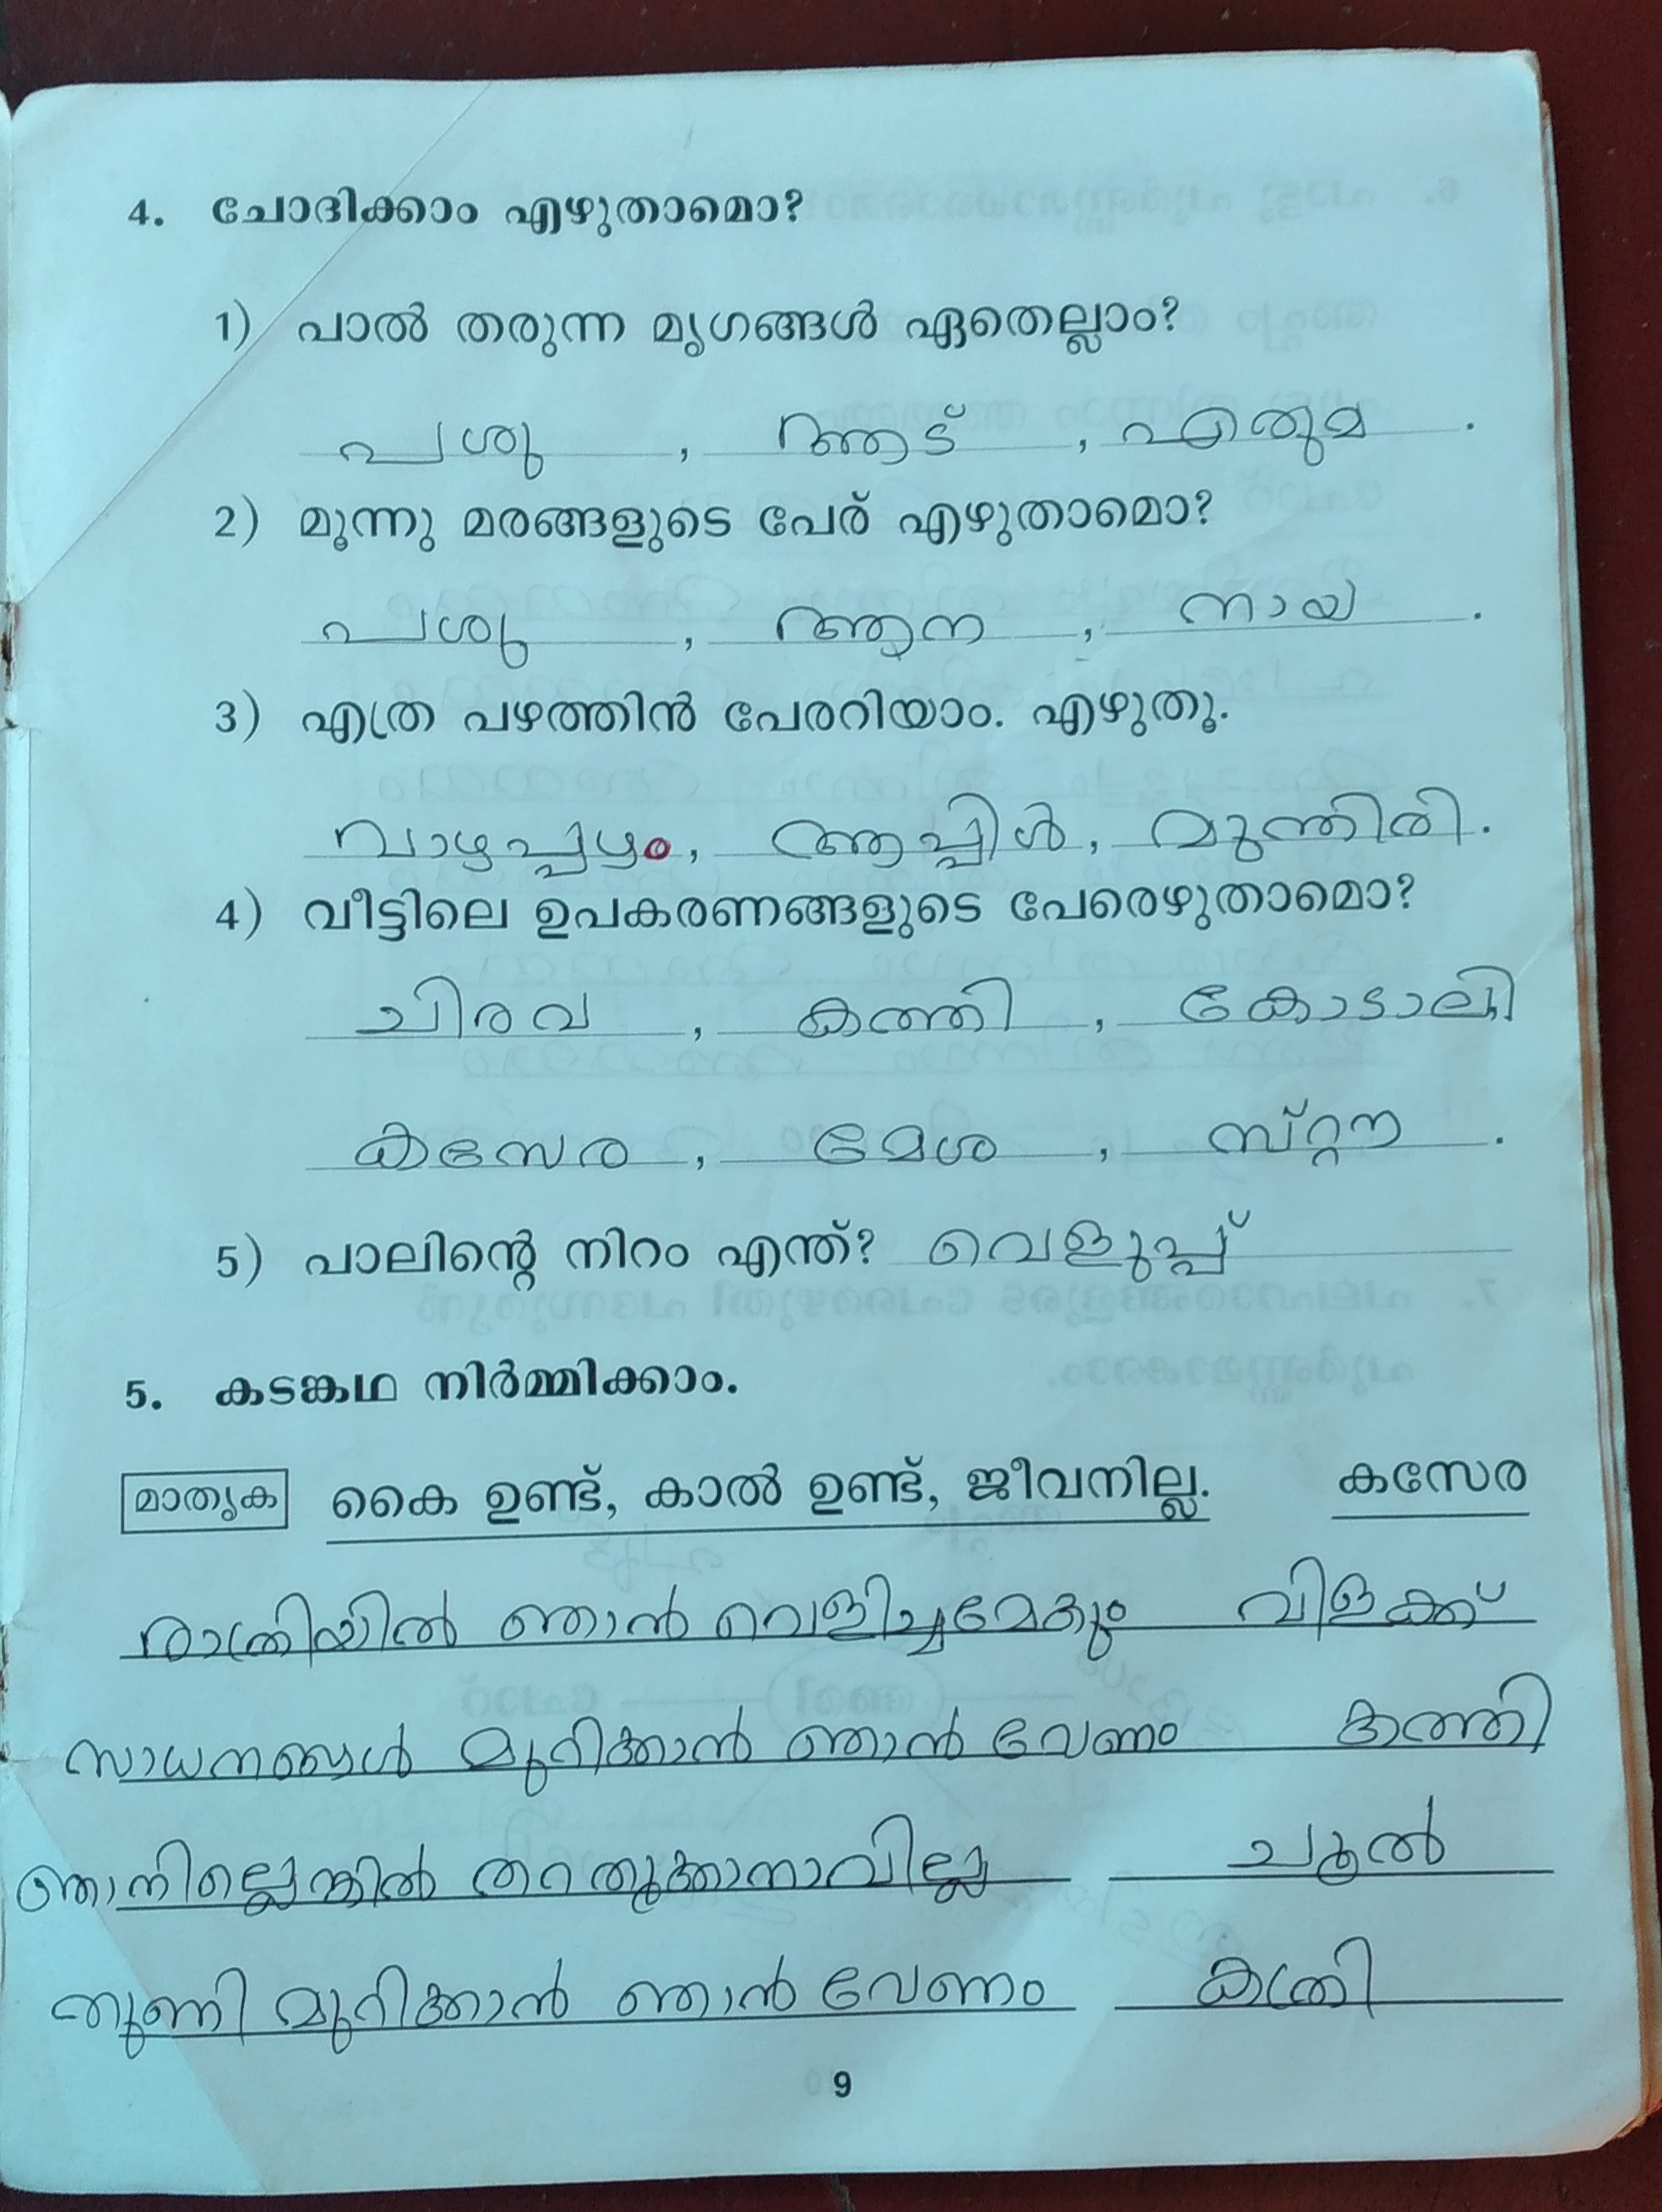 4. ചോദിക്കാം എഴുതാമൊ?
1) പാൽ തരുന്ന മൃഗങ്ങൾ ഏതെല്ലാം?
പശു , ആട് , എരുമ .
2) മൂന്നു മരങ്ങളുടെ പേര് എഴുതാമൊ?
പശു , ആന , നായ .
3) എത്ര പഴത്തിൻ പേരറിയാം. എഴുതൂ.
വാഴപ്പഴം, ആപ്പിൾ, മുന്തിരി.
4) വീട്ടിലെ ഉപകരണങ്ങളുടെ പേരെഴുതാമൊ?
ചിരവ , കത്തി , കോടാലി
കസേര , മേശ , സ്റ്റൗ .
5) പാലിന്റെ നിറം എന്ത്? വെളുപ്പ്
5. കടങ്കഥ നിർമ്മിക്കാം.
മാതൃക കൈ ഉണ്ട്, കാൽ ഉണ്ട്, ജീവനില്ല. കസേര
രാത്രിയിൽ ഞാൻ വെളിച്ചമേകും വിളക്ക്
സാധനങ്ങൾ മുറിക്കാൻ ഞാൻ വേണം കത്തി
ഞാനില്ലെങ്കിൽ തറ തൂക്കാനാവില്ല ചൂൽ
തുണി മുറിക്കാൻ ഞാൻ വേണം കത്രി
9